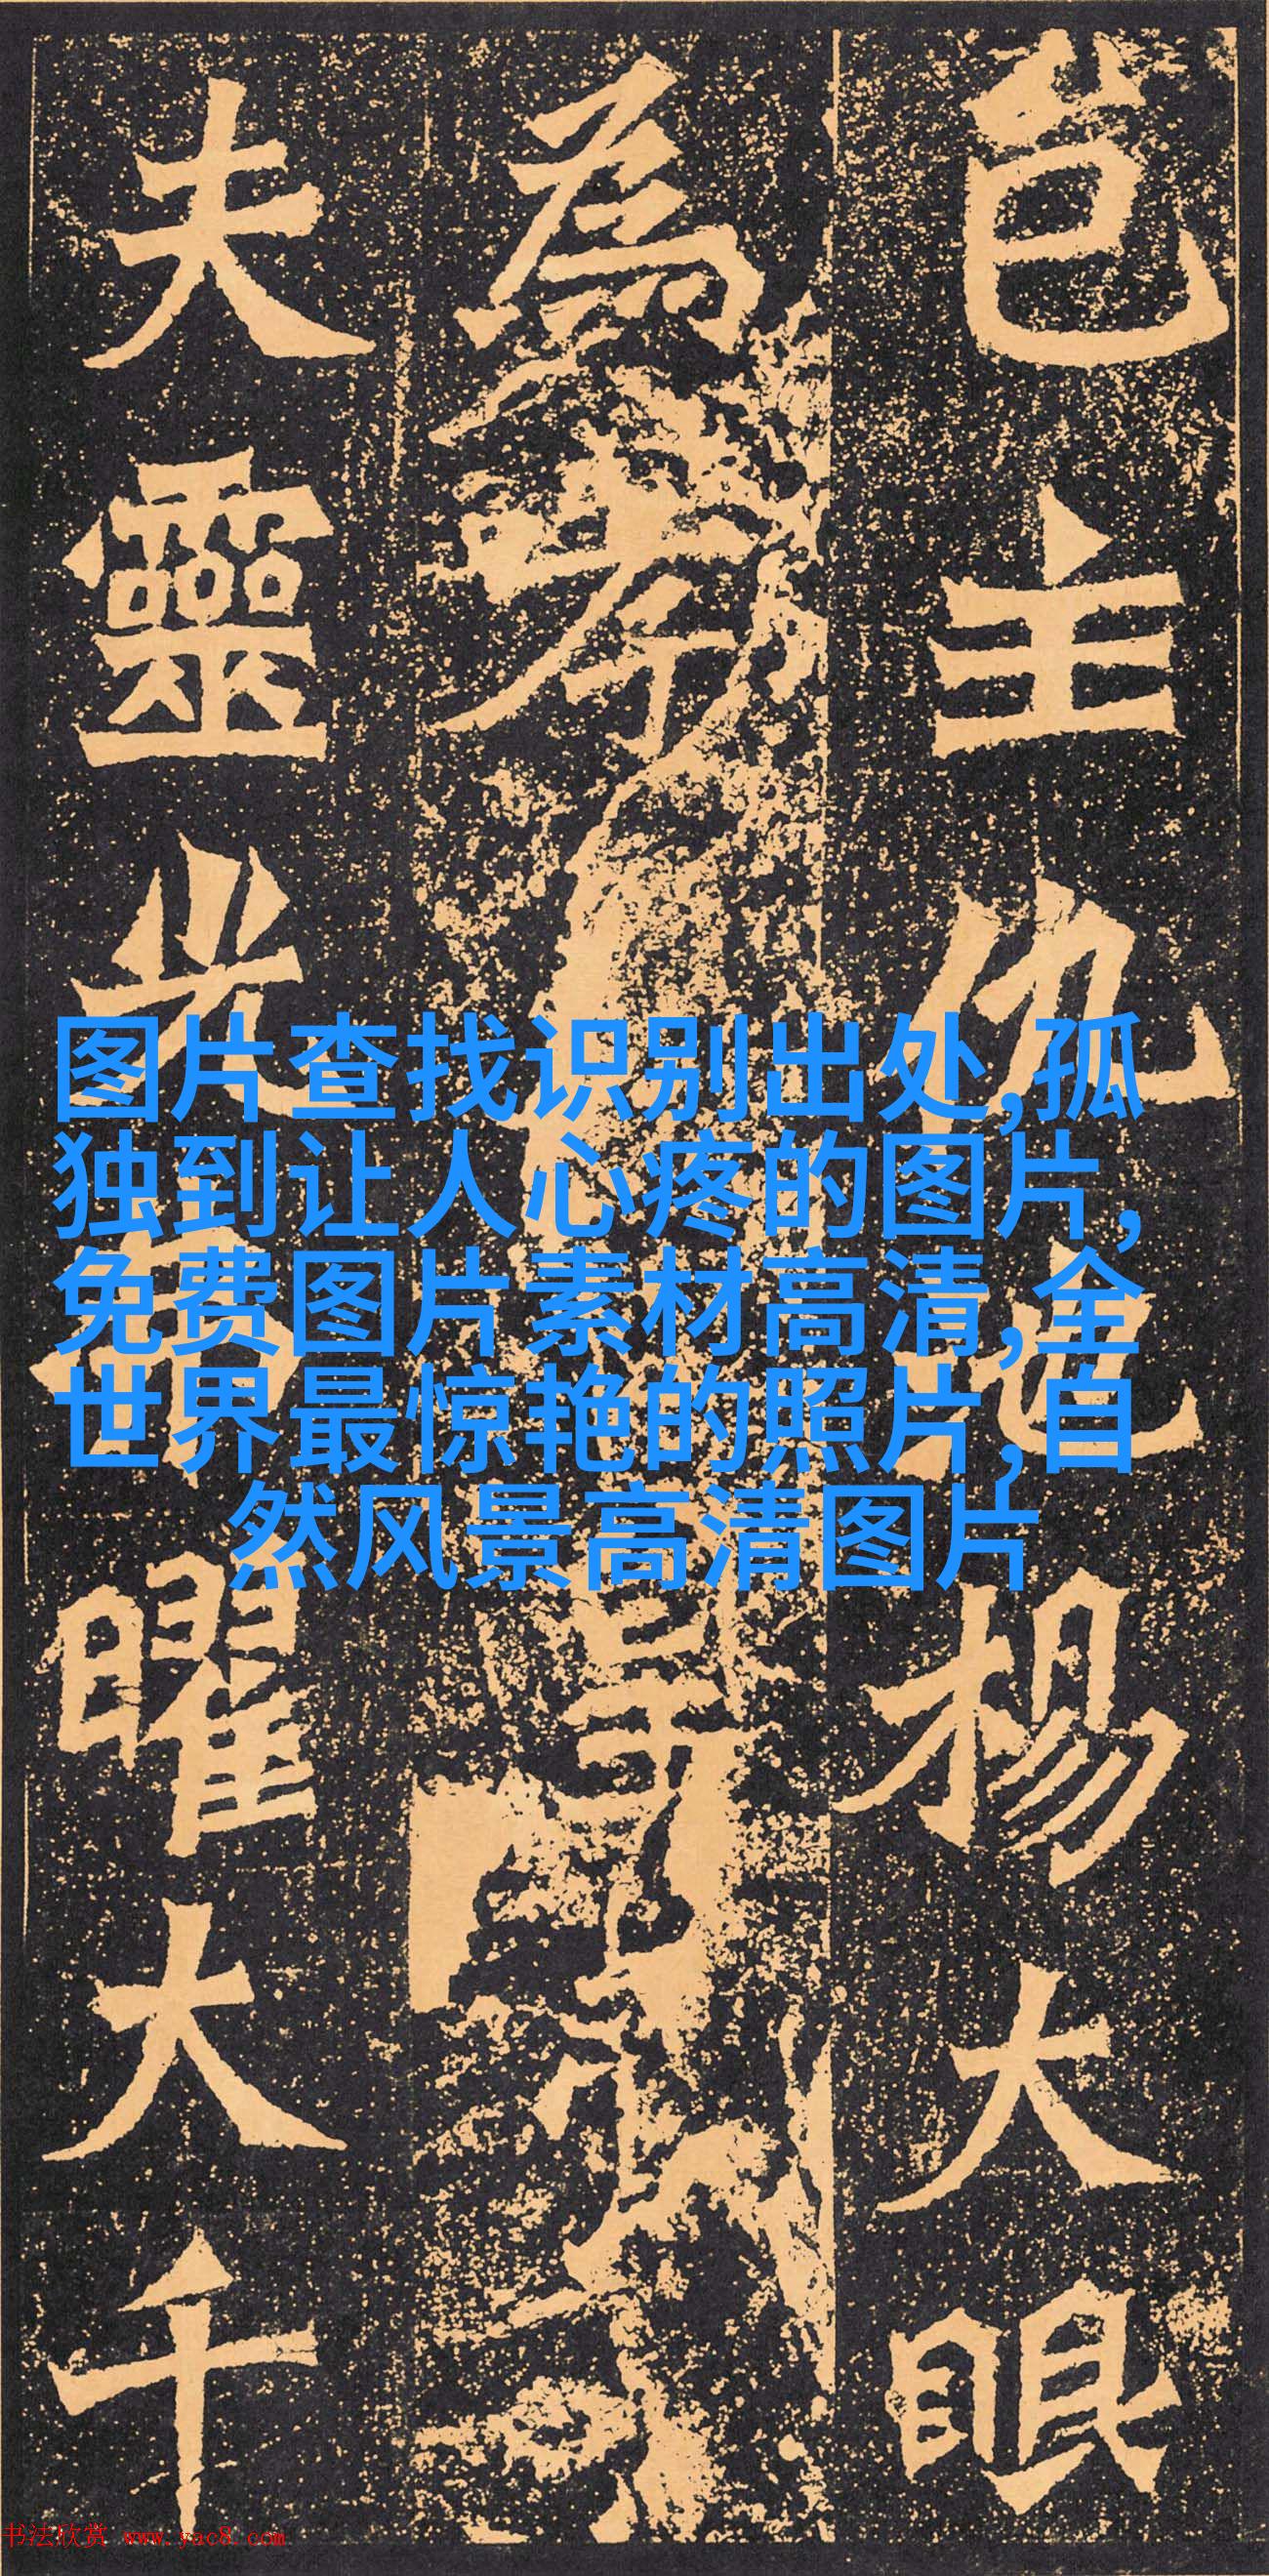 邑主仇池楊大眼
為孝
夫靈光弗曜大千
图片查找识别出处,孤
独到让人心疼的图片,
免费图片素材高清,全
世界最惊艳的照片,自
然风景高清图片
书法欣赏 www.yac8.com